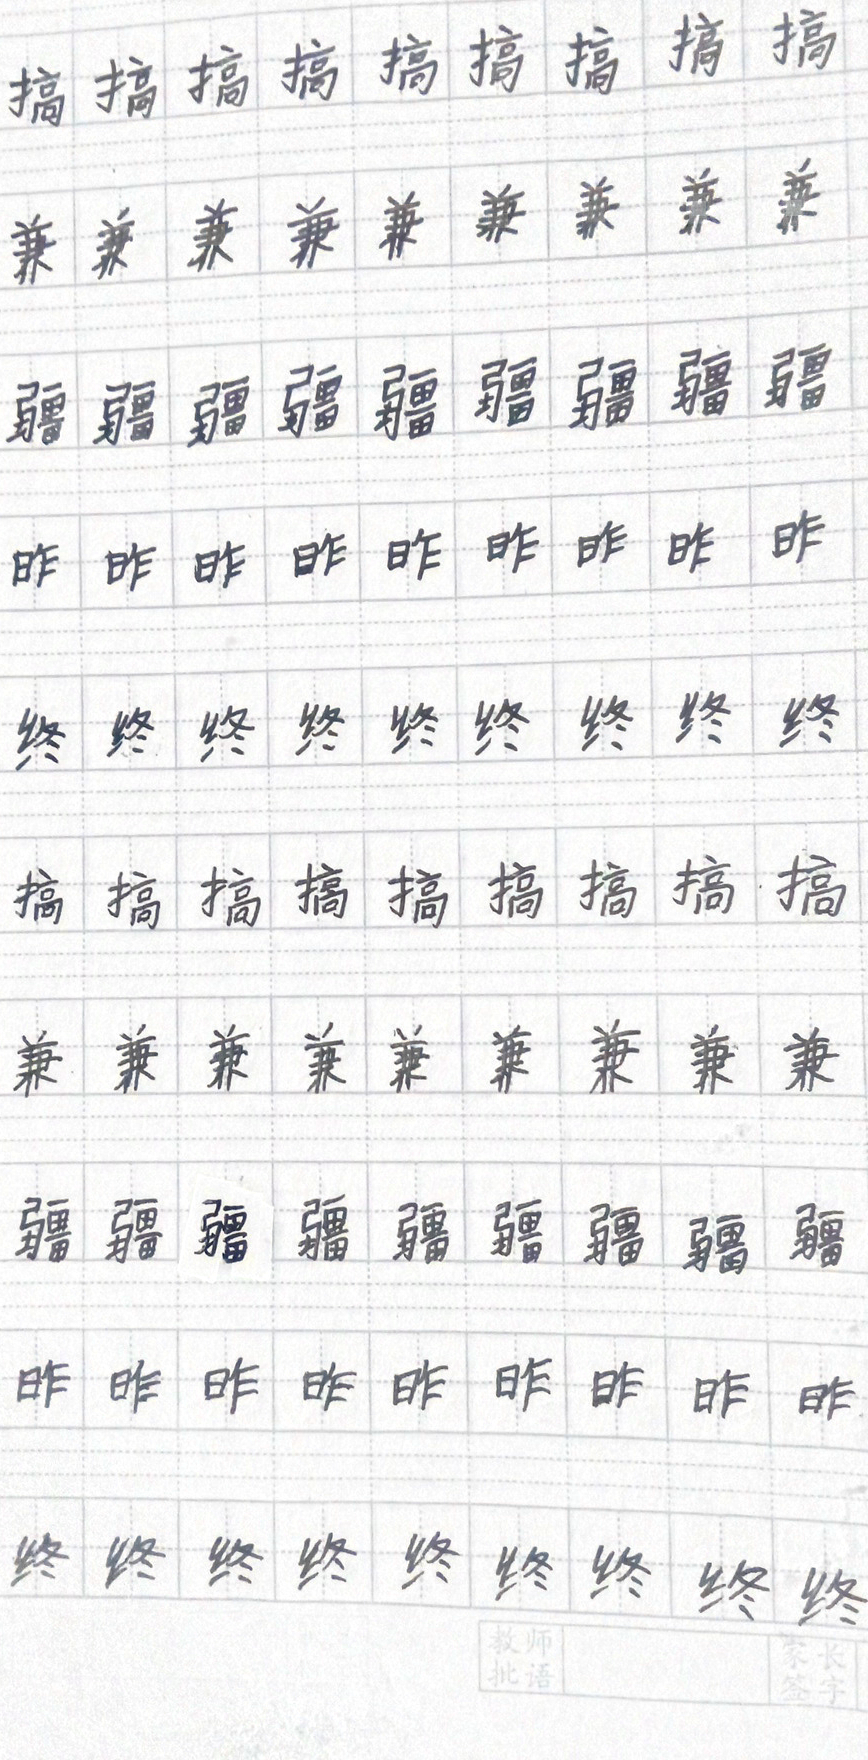 搞搞搞搞搞搞搞搞搞
兼兼兼兼兼兼兼兼兼
疆疆疆疆疆疆疆疆疆
昨昨昨昨昨昨昨昨昨
终终终终终终终终终
搞搞搞搞搞搞搞搞搞
兼兼兼兼兼兼兼兼兼
疆疆疆疆疆疆疆疆疆
昨昨昨昨昨昨昨昨昨
终终终终终终终终终
教师批语 家长签字